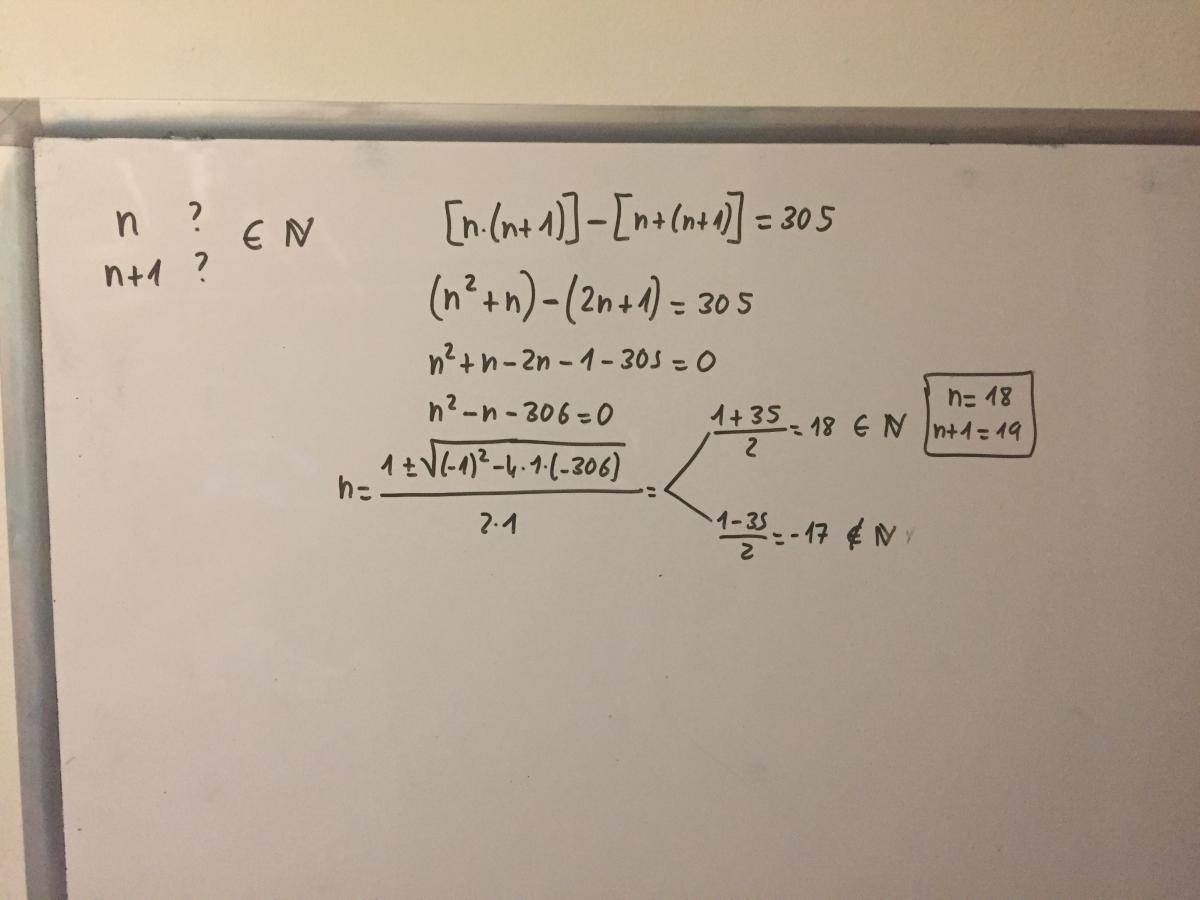 n ?
n+1 ?
∈ ℕ
[n·(n+1)]−[n+(n+1)] = 305
(n²+n)−(2n+1) = 305
n²+n−2n−1−305 = 0
n²−n−306=0
n= (1±√((-1)²−4·1·(-306)))/(2·1) =
(1+35)/2 = 18 ∈ ℕ
(1−35)/2 = -17 ∉ ℕ
n= 18
n+1 = 19